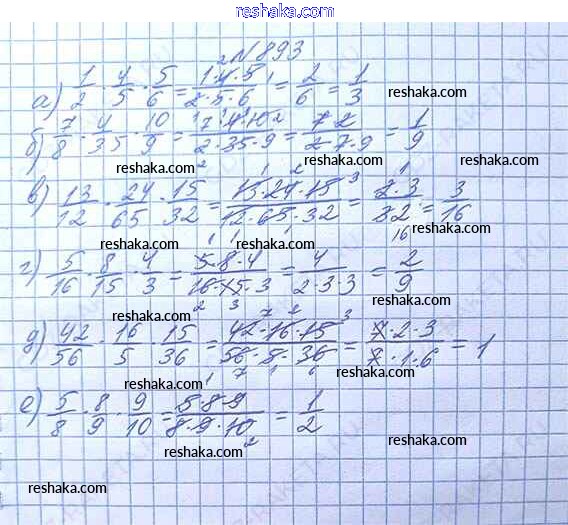 reshaka.com
№893
а) 1/2 · 4/5 · 5/6 = 1·4·5/2·5·6 = 2/6 = 1/3
reshaka.com
б) 7/8 · 4/35 · 10/9 = 7·4·10/2·35·9 = 7·2/2·7·9 = 1/9
reshaka.com
reshaka.com
в) 13/12 · 24/65 · 15/32 = 13·24·15/12·65·32 = 2·3/32 = 3/16
reshaka.com
reshaka.com
г) 5/16 · 8/15 · 4/3 = 5·8·4/16·15·3 = 4/2·3·3 = 2/9
reshaka.com
reshaka.com
д) 42/56 · 16/5 · 15/36 = 42·16·15/56·5·36 = 7·2·3/7·1·6 = 1
reshaka.com
reshaka.com
е) 5/8 · 8/9 · 9/10 = 5·8·9/8·9·10 = 1/2
reshaka.com
reshaka.com
reshaka.com